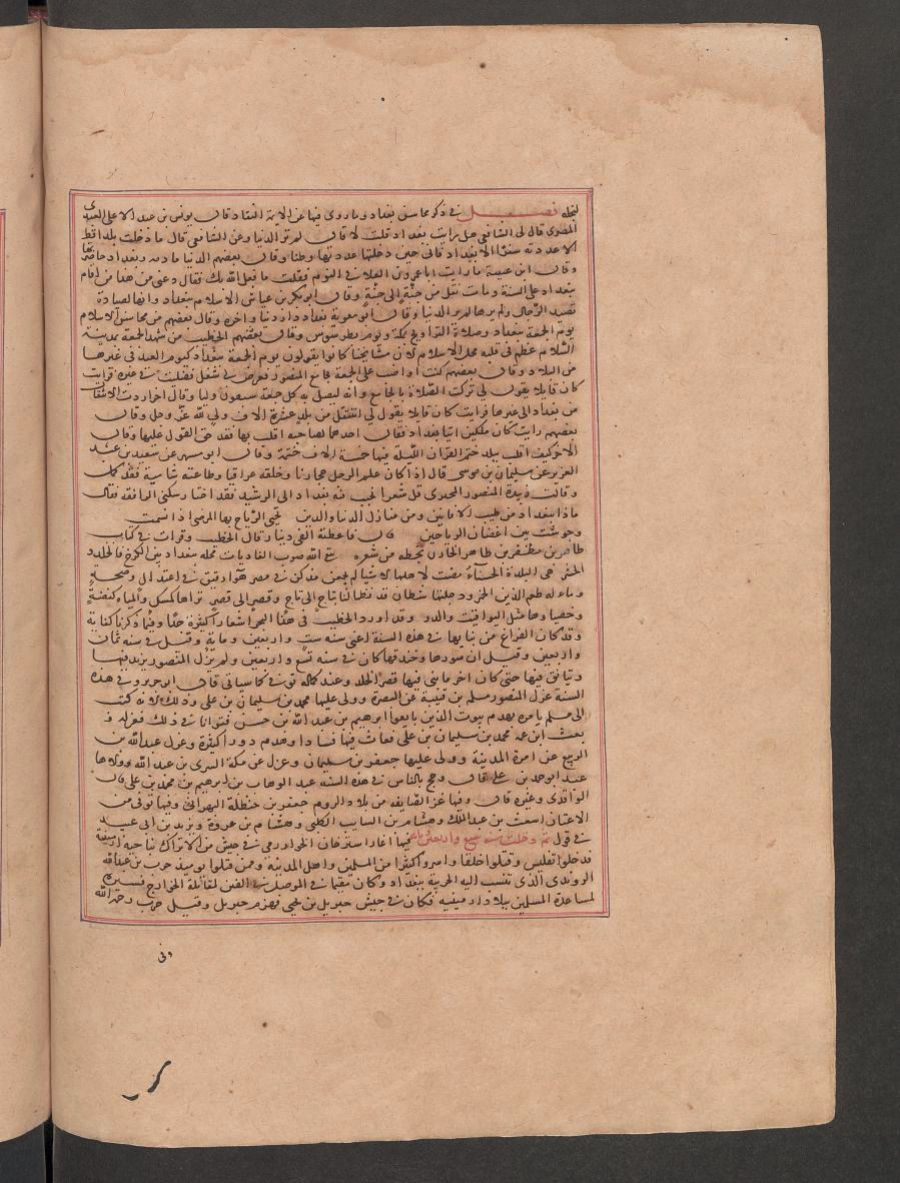 لنجله فصل في ذكر محاسن بغداد وما روي فيها عن الايمة النقاد قال يونس بن عبد الاعلى الصدفي
المصري قال لي الشافعي هل رايت بغداد قلت لا قال لم تر الدنيا وعن الشافعي قال ما دخلت بلدا قط
الا عددته سفرا الا بغداد فاني حين دخلتها عددتها وطنا وقال بعضهم الدنيا بادية وبغداد حاضرتها
وقال ابن علية ما رايت ابا عمرو بن العلا في النوم فقلت ما فعل الله بك فقال دعني من هذا من اقام
ببغداد على السنة ومات نقل من جنة الى جنة وقال ابو بكر بن عياش الاسلام ببغداد وانها لصيادة
تصيد الرجال ولم يرها لم ير الدنيا وقال ابو معوية بغداد دار دنيا واخرة وقال بعضهم من محاسن الاسلام
يوم الجمعة ببغداد وصلاة التراويح بمكة ويوم بطرسوس وقال بعضهم الخطيب من شهد الجمعة بمدينة
السلام عظم في قلبه محل الاسلام لان مشايخنا كانوا يقولون يوم الجمعة ببغداد كيوم العيد في غيرها
من البلاد وقال بعضهم كنت اواظب على الجمعة بجامع المنصور فعرض لي شغل فصليت في غيره فرايت
كان قايلا يقول لي تركت الصلاة بالجامع وانه ليصلي به كل جمعة سبعون وليا وقال اخر اردت الانتقال
من بغداد الى غيرها فرايت كان قايلا يقول لي اتنتقل من بلد عشرة الاف ولي لله عز وجل وقال
بعضهم رايت كان ملكين اتيا بغداد فقال احدهما لصاحبه اقلب بها فقد حق القول عليها وقال
الاخر كيف اقلب ببلد ختم القران الليلة فيها خمسة الاف ختمة وقال ابو مسهر عن سعيد بن عبد
العزيز عن سليمان بن موسى قال اذا كان علم الرجل حجازيا وخلقه عراقيا وطاعته شامية فقد كمل
وقالت زبيدة لمنصور النمري قل شعرا تحبب فيه بغداد الى الرشيد فقد اختار سكنى الرافقة فقال
ماذا ببغداد من طيب الافانين ومن منازل للدنيا وللدين تحيى الرياح بها المرضى اذا نسمت
وجوشت بين اغصان الرياحين قال فاعطته الفي دينار قال الخطيب وقرات في كتاب
طاهر بن مظفر بن طاهر الخازن بخطه من شعره سقى الله صوب الغاديات محلة ببغداد بين الكرخ فالخلد و
الجسر هي البلدة الحسناء خصت لاهلها باشيا لم يجمعن مذ كن في مصر هواء رقيق في اعتدال وصحة
وماء له طعم الذ من الخمر ودجلتها شطان قد نظما لنا بتاج الى تاج وقصر الى قصر تراها كمسك والمياه كفضة
وحصباوها مثل اليواقيت والدر وقد اورد الخطيب في هذا البحر اشعارا كثيرة جدا وفيما ذكرنا كفاية
وقد كان الفراغ من بنايها في هذه السنة اعني سنه ست واربعين وماية وقيل في سنه ثمان
واربعين وقيل ان سورها وخندقها كان في سنه تسع واربعين ولم يزل المنصور يزيد فيها
ويتانق فيها حتى كان اخر ما بنى فيها قصر الخلد وعند كماله توفي كما سياتي قال ابن جرير وفي هذه
السنة عزل المنصور سلم بن قتيبة عن البصرة وولى عليها محمد بن سليمان بن علي وذلك لانه كتب
الى سلم يامره بهدم بيوت الذين بايعوا ابرهيم بن عبد الله بن حسن فتوانا في ذلك فعزله و
بعث ابن عمه محمد بن سليمان بن علي فعاث فيها فسادا وهدم دورا كثيرة وعزل عبد الله بن
الربيع عن امرة المدينة وولى عليها جعفر بن سليمان وعزل عن مكة السري بن عبد الله وولاها
عبد الصمد بن علي قال وحج بالناس في هذه السنه عبد الوهاب بن ابرهيم بن محمد بن علي قال
الواقدي وغيره قال وفيها غزا الصايفه من بلاد الروم جعفر بن حنظلة البهراني وفيها توفي من
الاعيان اشعث بن عبد الملك وهشام بن السايب الكلبي وهشام بن عروة ويزيد بن ابي عبيد
في قول ثم دخلت سنه سبع واربعين ومايه فيها اغار استرخان الخوارزمي في جيش من الاتراك بناحية ارمينية
فدخلوا تفليس وقتلوا خلقا واسروا كثيرا من المسلمين واهل المدينة وممن قتلوا يوميذ حرب بن عبد الله
الروندي الذي تنسب اليه الحربية ببغداد وكان مقيما في الموصل في الفين لمقاتلة الخوارج فسيره
لمساعدة المسلمين ببلاد ارمينيه فكان في جيش جبريل بن يحيى فهزم جبريل وقتل حرب رحمه الله
وفي